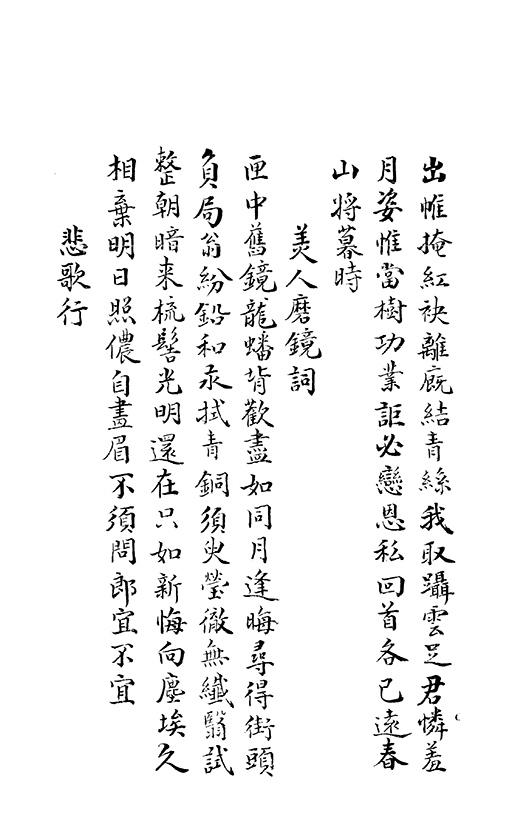 出帷掩紅袂離廐結青絲我取躡雲足君憐羞
月姿惟當樹功業詎必戀恩私回首各已遠春
山將暮時
美人磨鏡詞
匣中舊鏡龍蟠背歡盡如同月逢晦尋得街頭
負局翁紛鉛和汞拭青銅須臾瑩徹無纖翳試
整朝暗来梳髻光明還在只如新悔向塵埃久
相棄明日照儂自畫眉不須問郎宜不宜
悲歌行